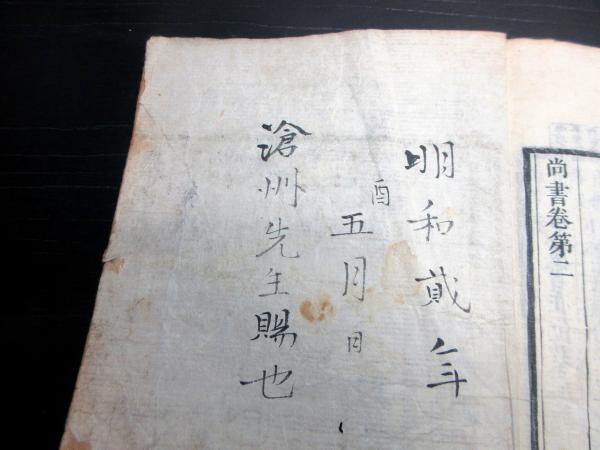 尚書卷第二
明和貳年
酉
五月日
滄州先生賜也